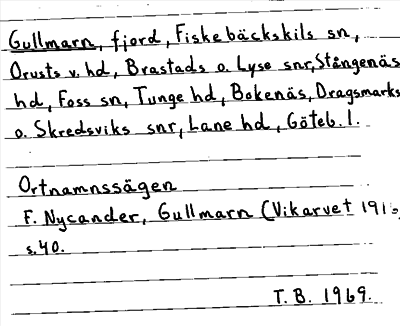 Gullmarn, fjord, Fiskebäckskils sn,
Orusts v. hd, Brastads o. Lyse snr, Stångenäs
hd, Foss sn, Tunge hd, Bokenäs, Dragsmarks
o. Skredsviks snr, Lane hd, Göteb. l.
Ortnamnssägen
F. Nycander, Gullmarn (Vikarvet
s. 40.
T. B. 1969.